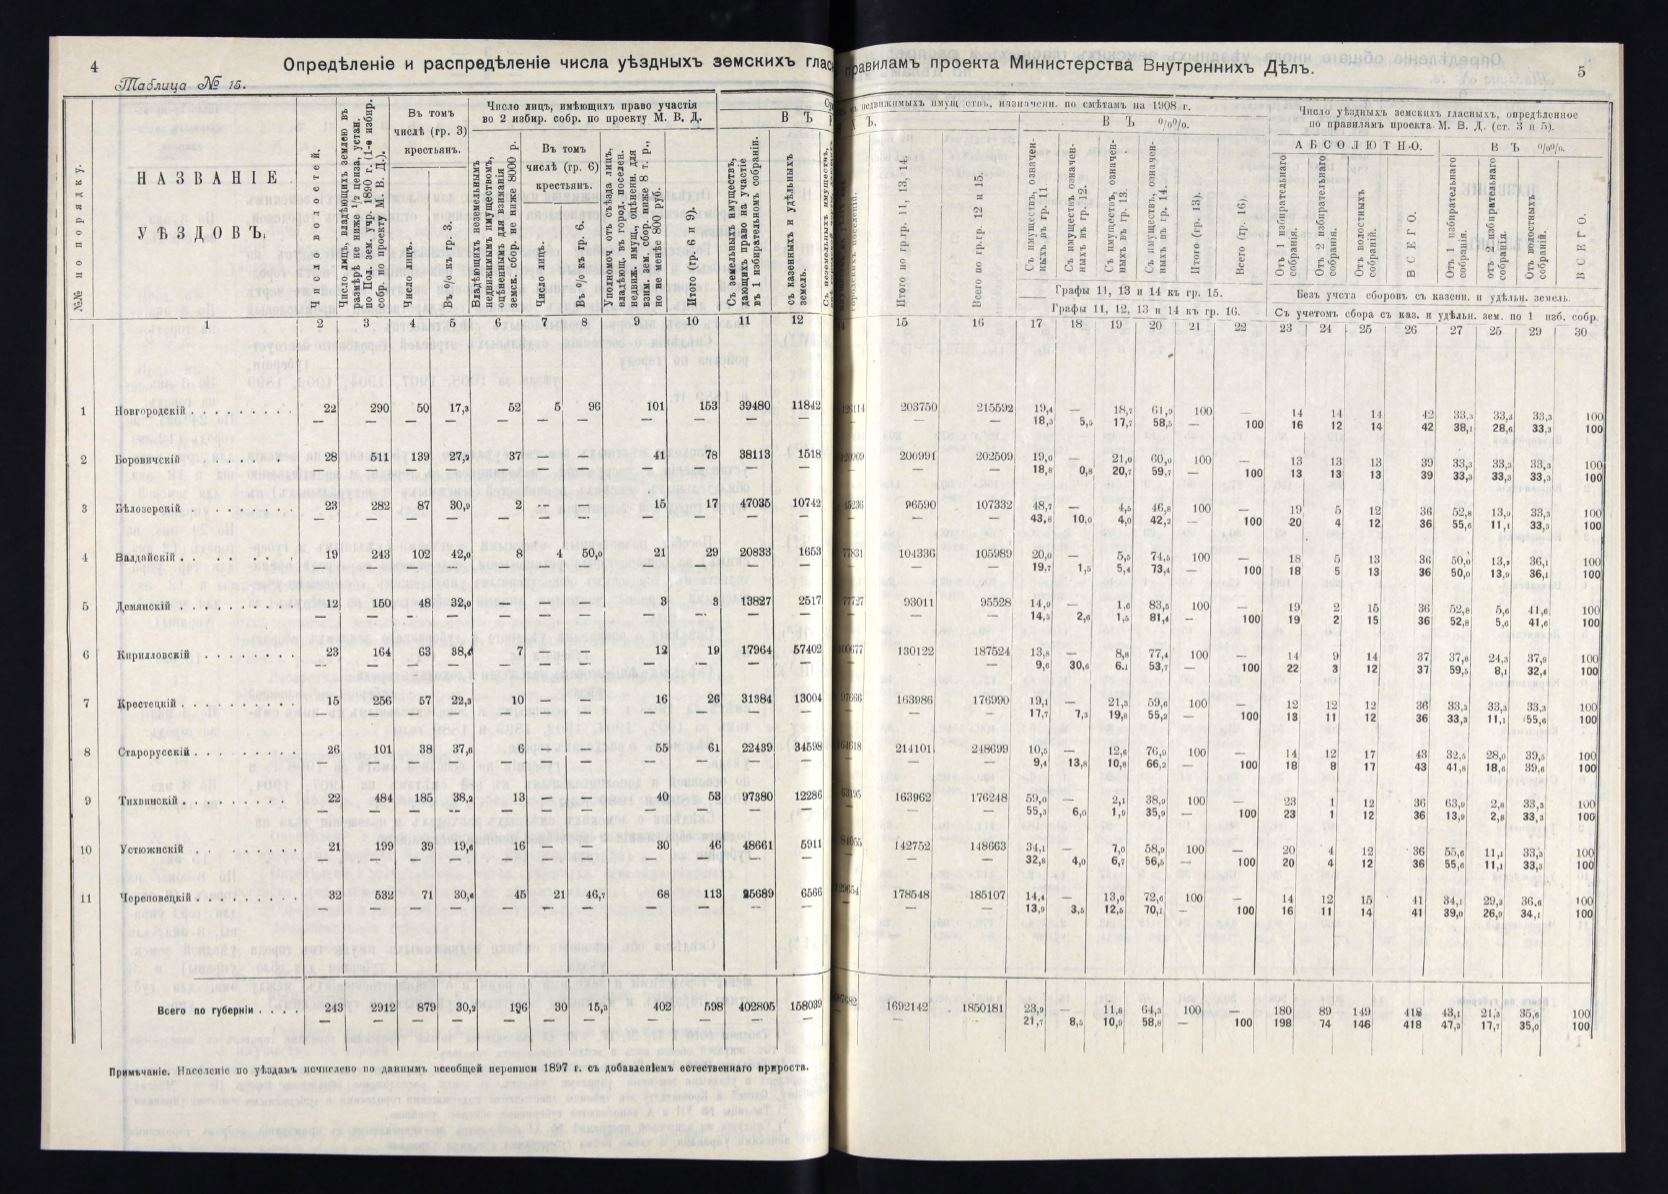 4
Таблица № 15.
Опредѣленіе и распредѣленіе числа уѣздныхъ земскихъ глас
правиламъ проекта Министерства Внутреннихъ Дѣлъ.
5
№№ по порядку.
НАЗВАНІЕ
УѢЗДОВЪ.
Число волостей.
Число лицъ, владѣющихъ землею въ размѣрѣ не ниже ½ ценза, устан. по Пол. зем. учр. 1890 г. (1-е избир. собр. по проекту М. В. Д.).
Въ томъ
числѣ (гр. 3)
крестьянъ.
Число лицъ.
Въ % къ гр. 3.
Число лицъ, имѣющихъ право участія
во 2 избир. собр. по проекту М. В. Д.
Владѣющихъ неземельнымъ недвижимымъ имуществомъ, оцѣненнымъ для взиманія земск. сбор. не ниже 8000 р.
Въ томъ
числѣ (гр. 6)
крестьянъ.
Число лицъ.
Въ % къ гр. 6.
Уполномоч отъ съѣзда лицъ, владѣющ. въ город. поселен. недвиж. имущ., оцѣненн. для взим. зем. сбор. ниже 8 т. р., но не менѣе 800 руб.
Итого (гр. 6 и 9).
В Ъ
Съ земельныхъ имуществъ, дающихъ право на участіе въ 1 избирательномъ собраніи.
съ казенныхъ и удѣльныхъ земель.
недвижимыхъ имуществъ, назначенн. по смѣтамъ на 1908 г.
Итого по гр.гр. 11, 13, 14.
Всего по гр.гр. 12 и 15.
В Ъ %%.
Съ имуществъ, означенныхъ въ гр. 11
Съ имуществъ означенныхъ въ гр. 12.
Съ имуществъ, означенныхъ въ гр. 13.
Съ имуществъ, означенныхъ въ гр. 14.
Итого (гр. 13).
Всего (гр. 16).
Графы 11, 13 и 14 къ гр. 15.
Графы 11, 12, 13 и 14 къ гр. 16.
Число уѣздныхъ земскихъ гласныхъ, опредѣленное
по правиламъ проекта М. В. Д. (ст. 3 и 5).
АБСОЛЮТНО.
В Ъ %%.
Отъ 1 избирательнаго собранія.
Отъ 2 избирательнаго собранія.
Отъ волостныхъ собраній.
ВСЕГО.
Отъ 1 избирательнаго собранія.
отъ 2 избирательнаго собранія.
Отъ волостныхъ собраній.
ВСЕГО.
Безъ учста сборовъ съ казенн. и удѣльн. земель.
Съ учетомъ сбора съ каз. и удѣльн. зем. по 1 изб. собр.
1 2 3 4 5 6 7 8 9 10 11 12 15 16 17 18 19 20 21 22 23 24 25 26 27 25 29 30
1 Новгородскій 22 290 50 17,3 52 5 96 101 153 39480 11842 203750 215592 19,4 — 18,7 61,9 100 — 14 14 14 42 33,3 33,3 33,3 100
— — — — — — — — — — — — — 18,3 5,5 17,7 58,5 — 100 16 12 14 42 38,1 28,6 33,3 100
2 Боровичскій 28 511 139 27,2 37 — — 41 78 38113 1518 200991 202509 19,0 — 21,0 60,0 100 — 13 13 13 39 33,3 33,3 33,3 100
— — — — — — — — — — — — — 18,8 0,8 20,7 59,7 — 100 13 13 13 39 33,3 33,3 33,3 100
3 Бѣлозерскій 23 282 87 30,9 2 — — 15 17 47035 10742 96590 107332 48,7 — 4,5 46,8 100 — 19 5 12 36 52,8 13,9 33,3 100
— — — — — — — — — — — — — 43,8 10,0 4,0 42,2 — 100 20 4 12 36 55,6 11,1 33,3 100
4 Валдайскій 19 243 102 42,0 8 4 50,0 21 29 20833 1653 77831 104336 105989 20,0 — 5,5 74,5 100 — 18 5 13 36 50,0 13,9 36,1 100
— — — — — — — — — — — — — 19,7 1,5 5,4 73,4 — 100 18 5 13 36 50,0 13,9 36,1 100
5 Демянскій 12 150 48 32,0 — — — 3 3 13827 2517 93011 95528 14,9 — 1,6 83,5 100 — 19 2 15 36 52,8 5,6 41,6 100
— — — — — — — — — — — — — 14,5 2,6 1,5 81,4 — 100 19 2 15 36 52,8 5,6 41,6 100
6 Кирилловскій 23 164 63 38,4 7 — — 12 19 17964 57402 130122 187524 13,8 — 8,8 77,4 100 — 14 9 14 37 37,8 24,3 37,9 100
— — — — — — — — — — — — — 9,6 30,6 6.1 53,7 — 100 22 3 12 37 59,5 8,1 32,4 100
7 Крестецкій 15 256 57 22,3 10 — — 16 26 31384 13004 163986 176990 19,1 — 21,3 59,6 100 — 12 12 12 36 33,3 33,3 33,3 100
— — — — — — — — — — — — — 17,7 7,3 19,8 55,2 — 100 13 11 12 36 33,3 11,1 55,6 100
8 Старорусскій 26 101 38 37,6 6 — — 55 61 22439 34598 214101 248699 10,5 — 12,6 76,9 100 — 14 12 17 43 32,5 28,0 39,5 100
— — — — — — — — — — — — — 9,4 13,8 10,8 66,2 — 100 18 8 17 43 41,8 18,6 39,6 100
9 Тихвинскій 22 484 185 38,2 13 — — 40 53 97380 12286 163962 176248 59,0 — 2,1 38,9 100 — 23 1 12 36 63,9 2,8 33,3 100
— — — — — — — — — — — — — 55,3 6,0 1,9 35,9 — 100 23 1 12 36 13,9 2,8 33,3 100
10 Устюжнскій 21 199 39 19,6 16 — — 30 46 48661 5911 142752 148663 34,1 — 7,0 58,9 100 — 20 4 12 36 55,6 11,1 33,3 100
— — — — — — — — — — — — — 32,8 4,0 6,7 56,5 — 100 20 4 12 36 55,6 11,1 33,3 100
11 Череповецкій 32 532 71 30,6 45 21 46,7 68 113 25689 6566 178548 185107 14,4 — 13,0 72,6 100 — 14 12 15 41 34,1 29,3 36,6 100
— — — — — — — — — — — — — 13,9 3,5 12,5 70,1 — 100 16 11 14 41 39,0 26,9 34,1 100
Всего по губерніи 243 2912 879 30,2 196 30 15,3 402 598 402805 158039 1692142 1850181 23,9 — 11,8 64,3 100 — 180 89 149 418 43,1 21,3 35,6 100
— — — — — — — — — — — — — 21,7 8,5 10,9 58,8 — 100 198 74 146 418 47,3 17,7 35,0 100
Примѣчаніе. Населеніе по уѣздамъ исчислено по даннымъ всеобщей переписи 1897 г. съ добавленіемъ естественнаго прироста.